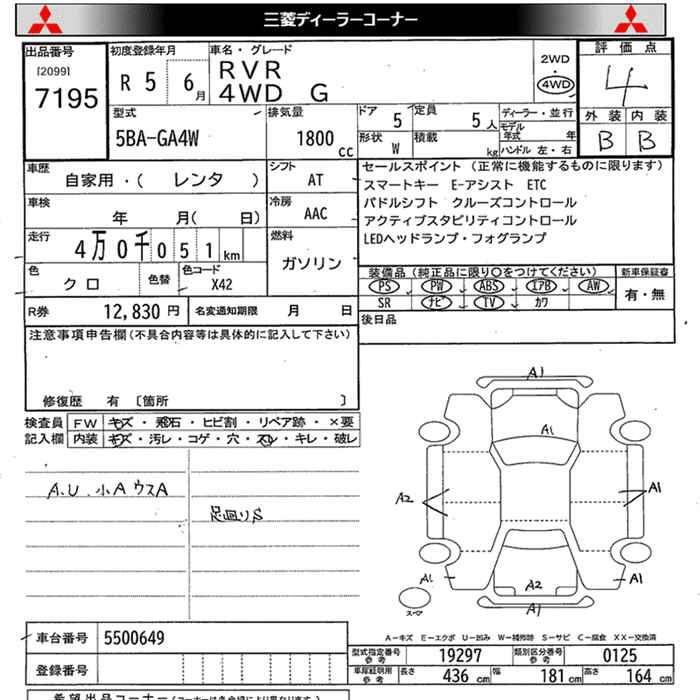 三菱ディーラーコーナー
出品番号
[2099]
7195
初度登録年月
R 5 6月
車名・グレード
RVR
4WD G
2WD
・
4WD
評価点
4
外装 内装
B B
型式
5BA-GA4W
排気量
1800 cc
ドア
5
定員
5人
形状
W
積載
kg
ディーラー・並行
モデル年式 年
ハンドル 左・右
車歴
自家用・( レンタ )
シフト
AT
車検
年 月( 日)
冷房
AAC
走行
4万0千051km
燃料
ガソリン
色
クロ
色替
色コード
X42
R券
12,830 円
名変通知期限 月 日
セールスポイント (正常に機能するものに限ります)
スマートキー E-アシスト ETC
パドルシフト クルーズコントロール
アクティブスタビリティコントロール
LEDヘッドランプ・フォグランプ
装備品(純正品に限り○をつけてください)
PS PW ABS エアB AW
SR ナビ TV カワ
新車保証書
有・無
後日品
注意事項申告欄(不具合内容等は具体的に記入して下さい)
修復歴 有 〔箇所 〕
検査員記入欄
FW キズ・飛石・ヒビ割・リペア跡・×要
内装 キズ・汚レ・コゲ・穴・スレ・キレ・破レ
A.U.小A ウスA
足廻りS
A1
A1
A2
A1
A1
A2
A1
A1
スペア
A-キズ E-エクボ U-凹み W-補修跡 S-サビ C-腐食 XX-交換済
車台番号
5500649
登録番号
型式指定番号 参考
19297
類別区分番号 参考
0125
車庫証明用 参考
長さ 436 cm
幅 181 cm
高さ 164 cm
希望出品コーナー